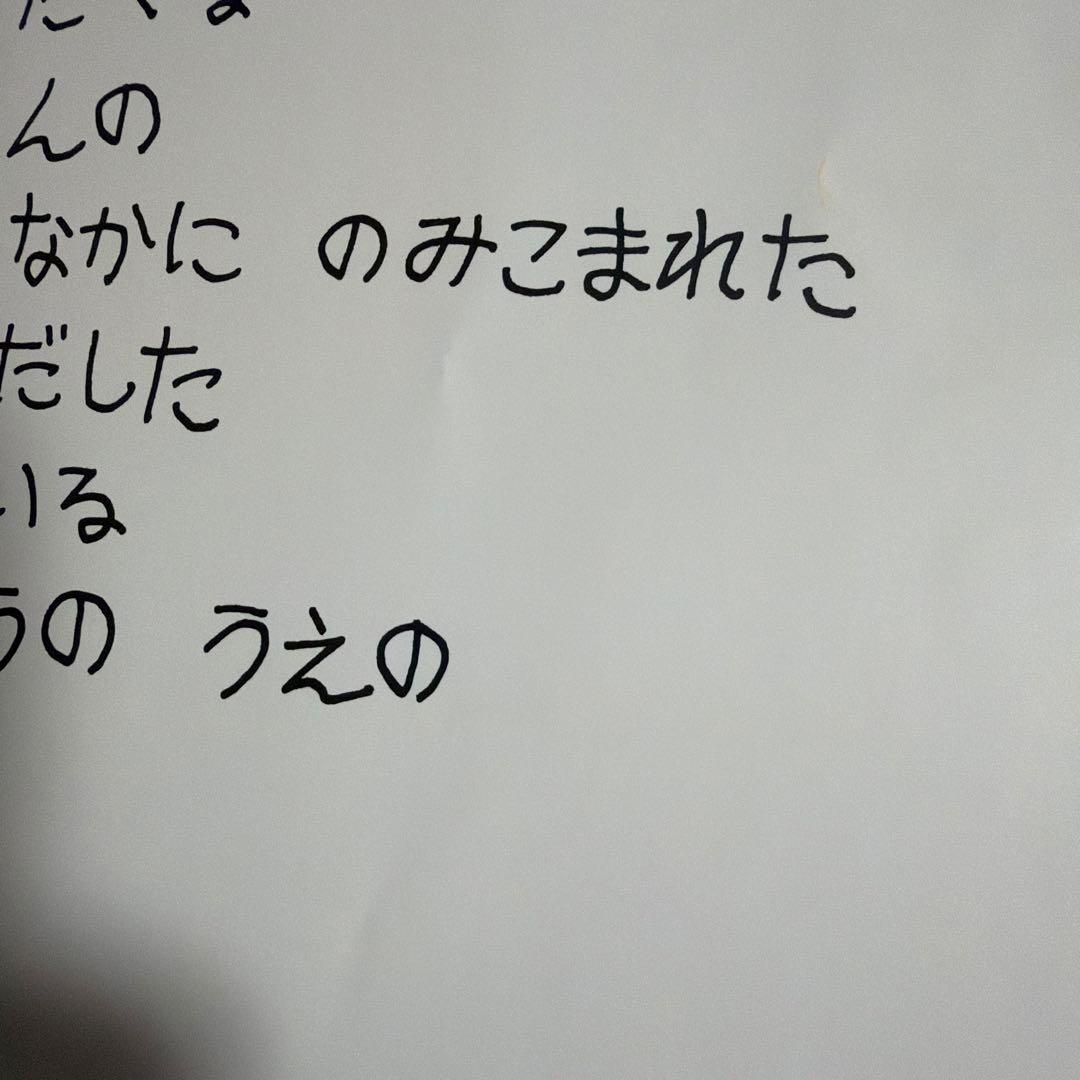 んの
なかに のみこまれた
だした
いる
うの うえの